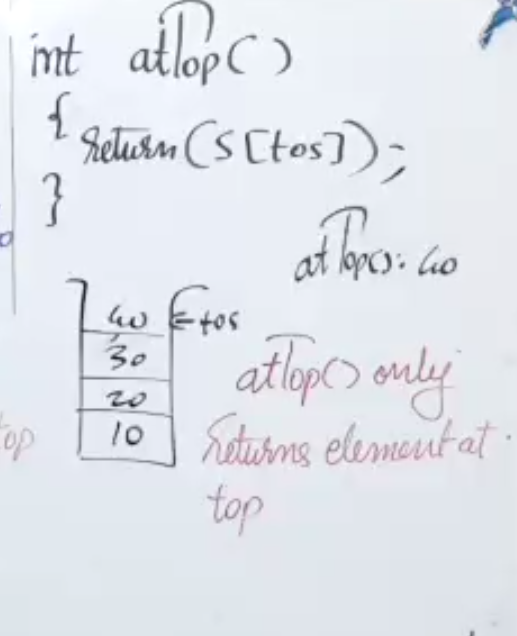 int atTop()
{
return(S[tos]);
}
atTop(): 40
40 ← tos
30
20
10
atTop() only
returns element at
top
op